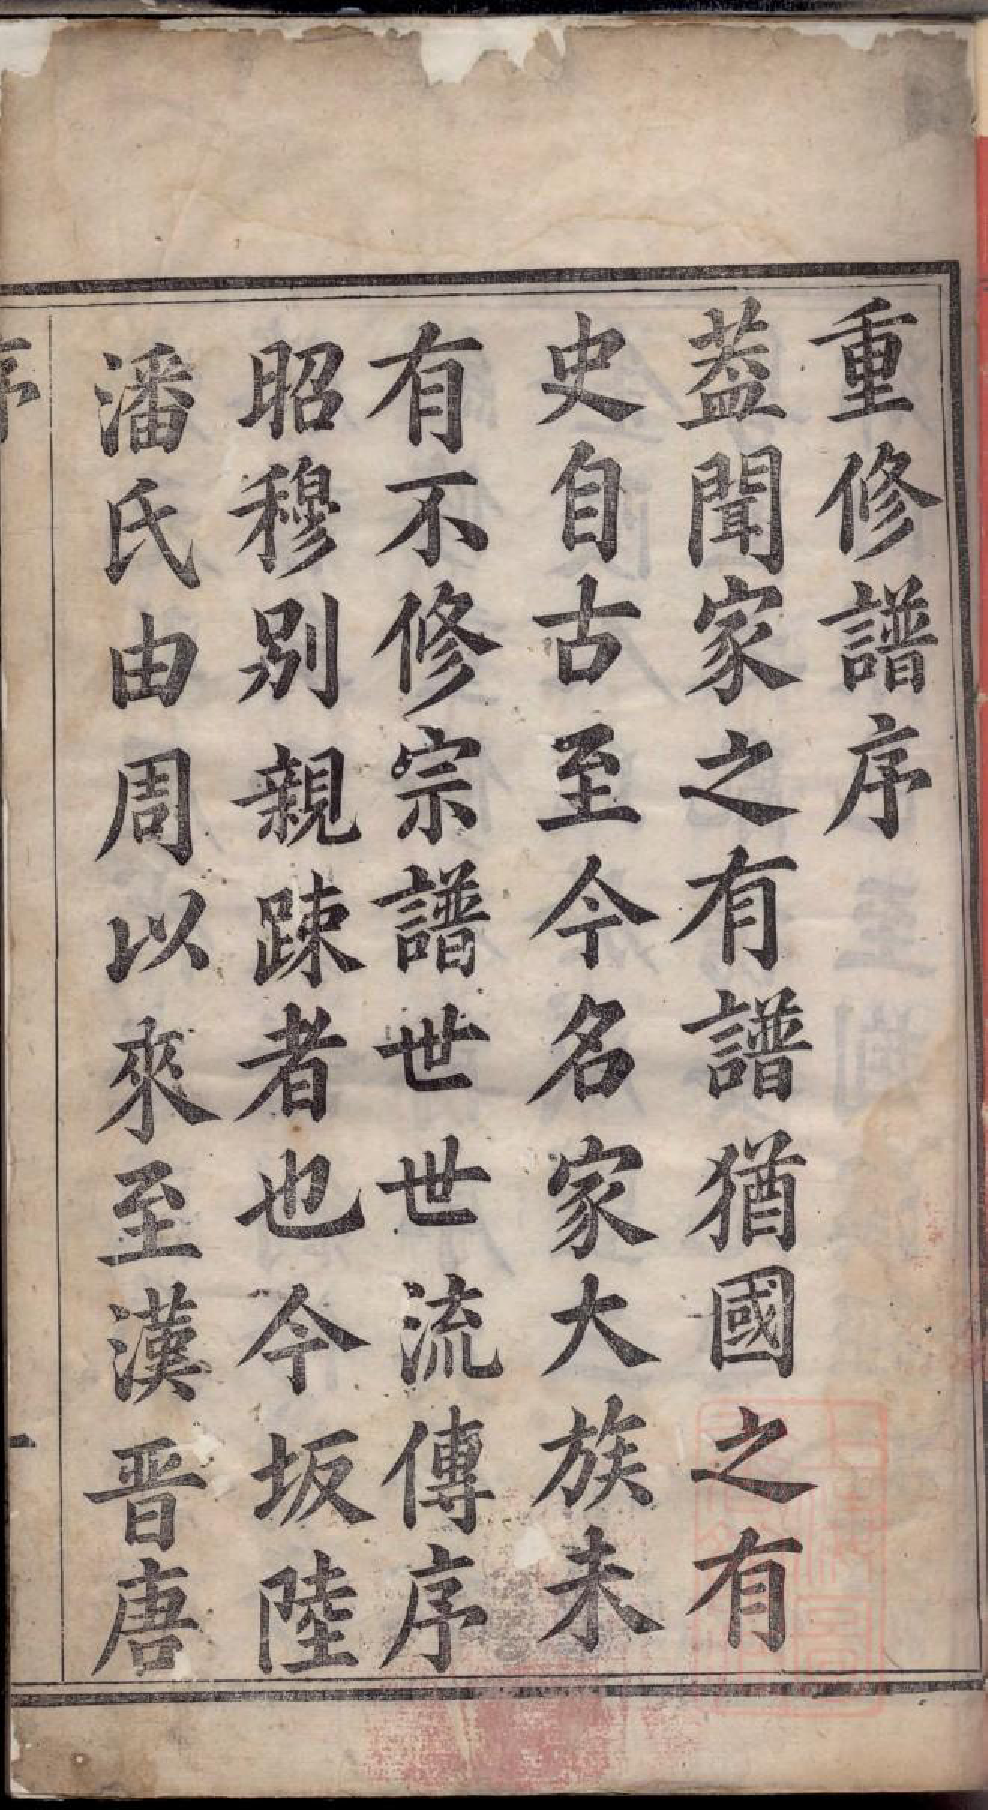 重修譜序
葢聞家之有譜猶國之有
史自古至今名家大族未
有不修宗譜世世流傳序
昭穆别親踈者也今坂陸
潘氏由周以來至漢晋唐
序
一